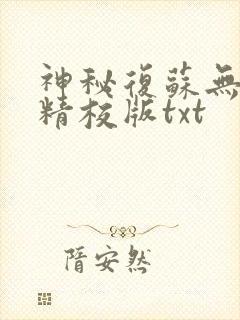 神秘復蘇無
精校版txt
隋安然